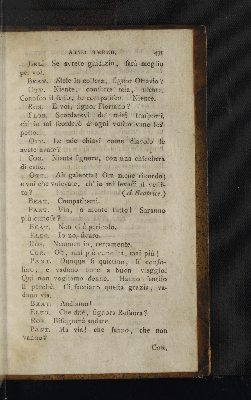 ATTO TERZO. 431
LEL. Se avrete giudizio, sarà meglio
per voi.
BEAT. Siete in collera, signor Ottavio?
OTT. Niente, consorte mia, niente.
Conosco il sesso, lo compatisco. Niente.
ROS. E voi, signor Florindo?
FLOR. Scordatevi de' miei trasporti,
ch'io mi scorderò d'ogni vostro
OTT. Le mie chiavi come diavolo le
avete avute?
COR. Niente signore, con una chicchera
di caffè.
OTT. Ah galeotta! Ora me ne ricordo;
e voi che volevate, ch'io mi levassi il vesti-
to? (a Beatrice.)
BEAT. Compatitemi.
PANT. Via, a monte tutto! Saranno
più curiose?
BEAT. Non vi è pericolo.
ELEO. Io no, sicuro.
ROS. Nemmen io, certamente.
COR. Oh, mai più curiosità, mai più!
PANT. Dunque si quietino, si conso-
lino, e vadano tutte a buon viaggio.
Qui non vogliamo donne. Hanno sentito
il perchè. Ci facciano questa grazia, va-
dano via.
BEAT. Andiamo!
ELEO. Che dite, signora Rosaura?
ROS. Bisognerà andare
PANT. Ma via! che fanno, che non
vanno?
COR.